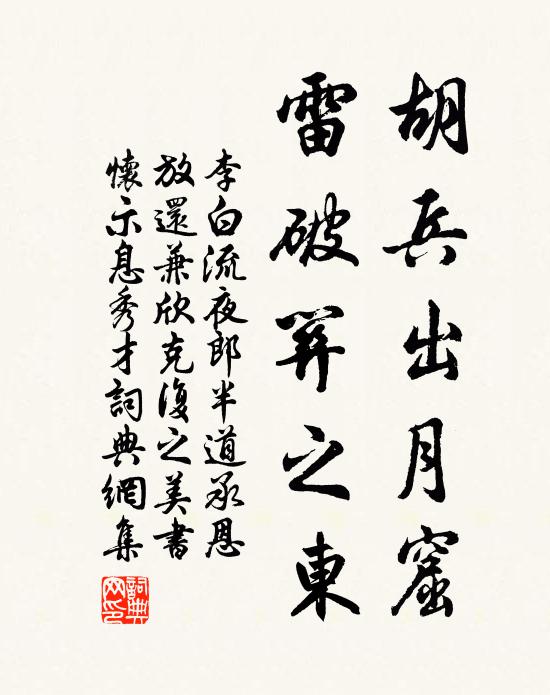 胡兵出月窟
雷破關之東
李白流夜郎半道承恩
放還兼欣克復之美書
懷示息秀才詞典網集
詞典網印